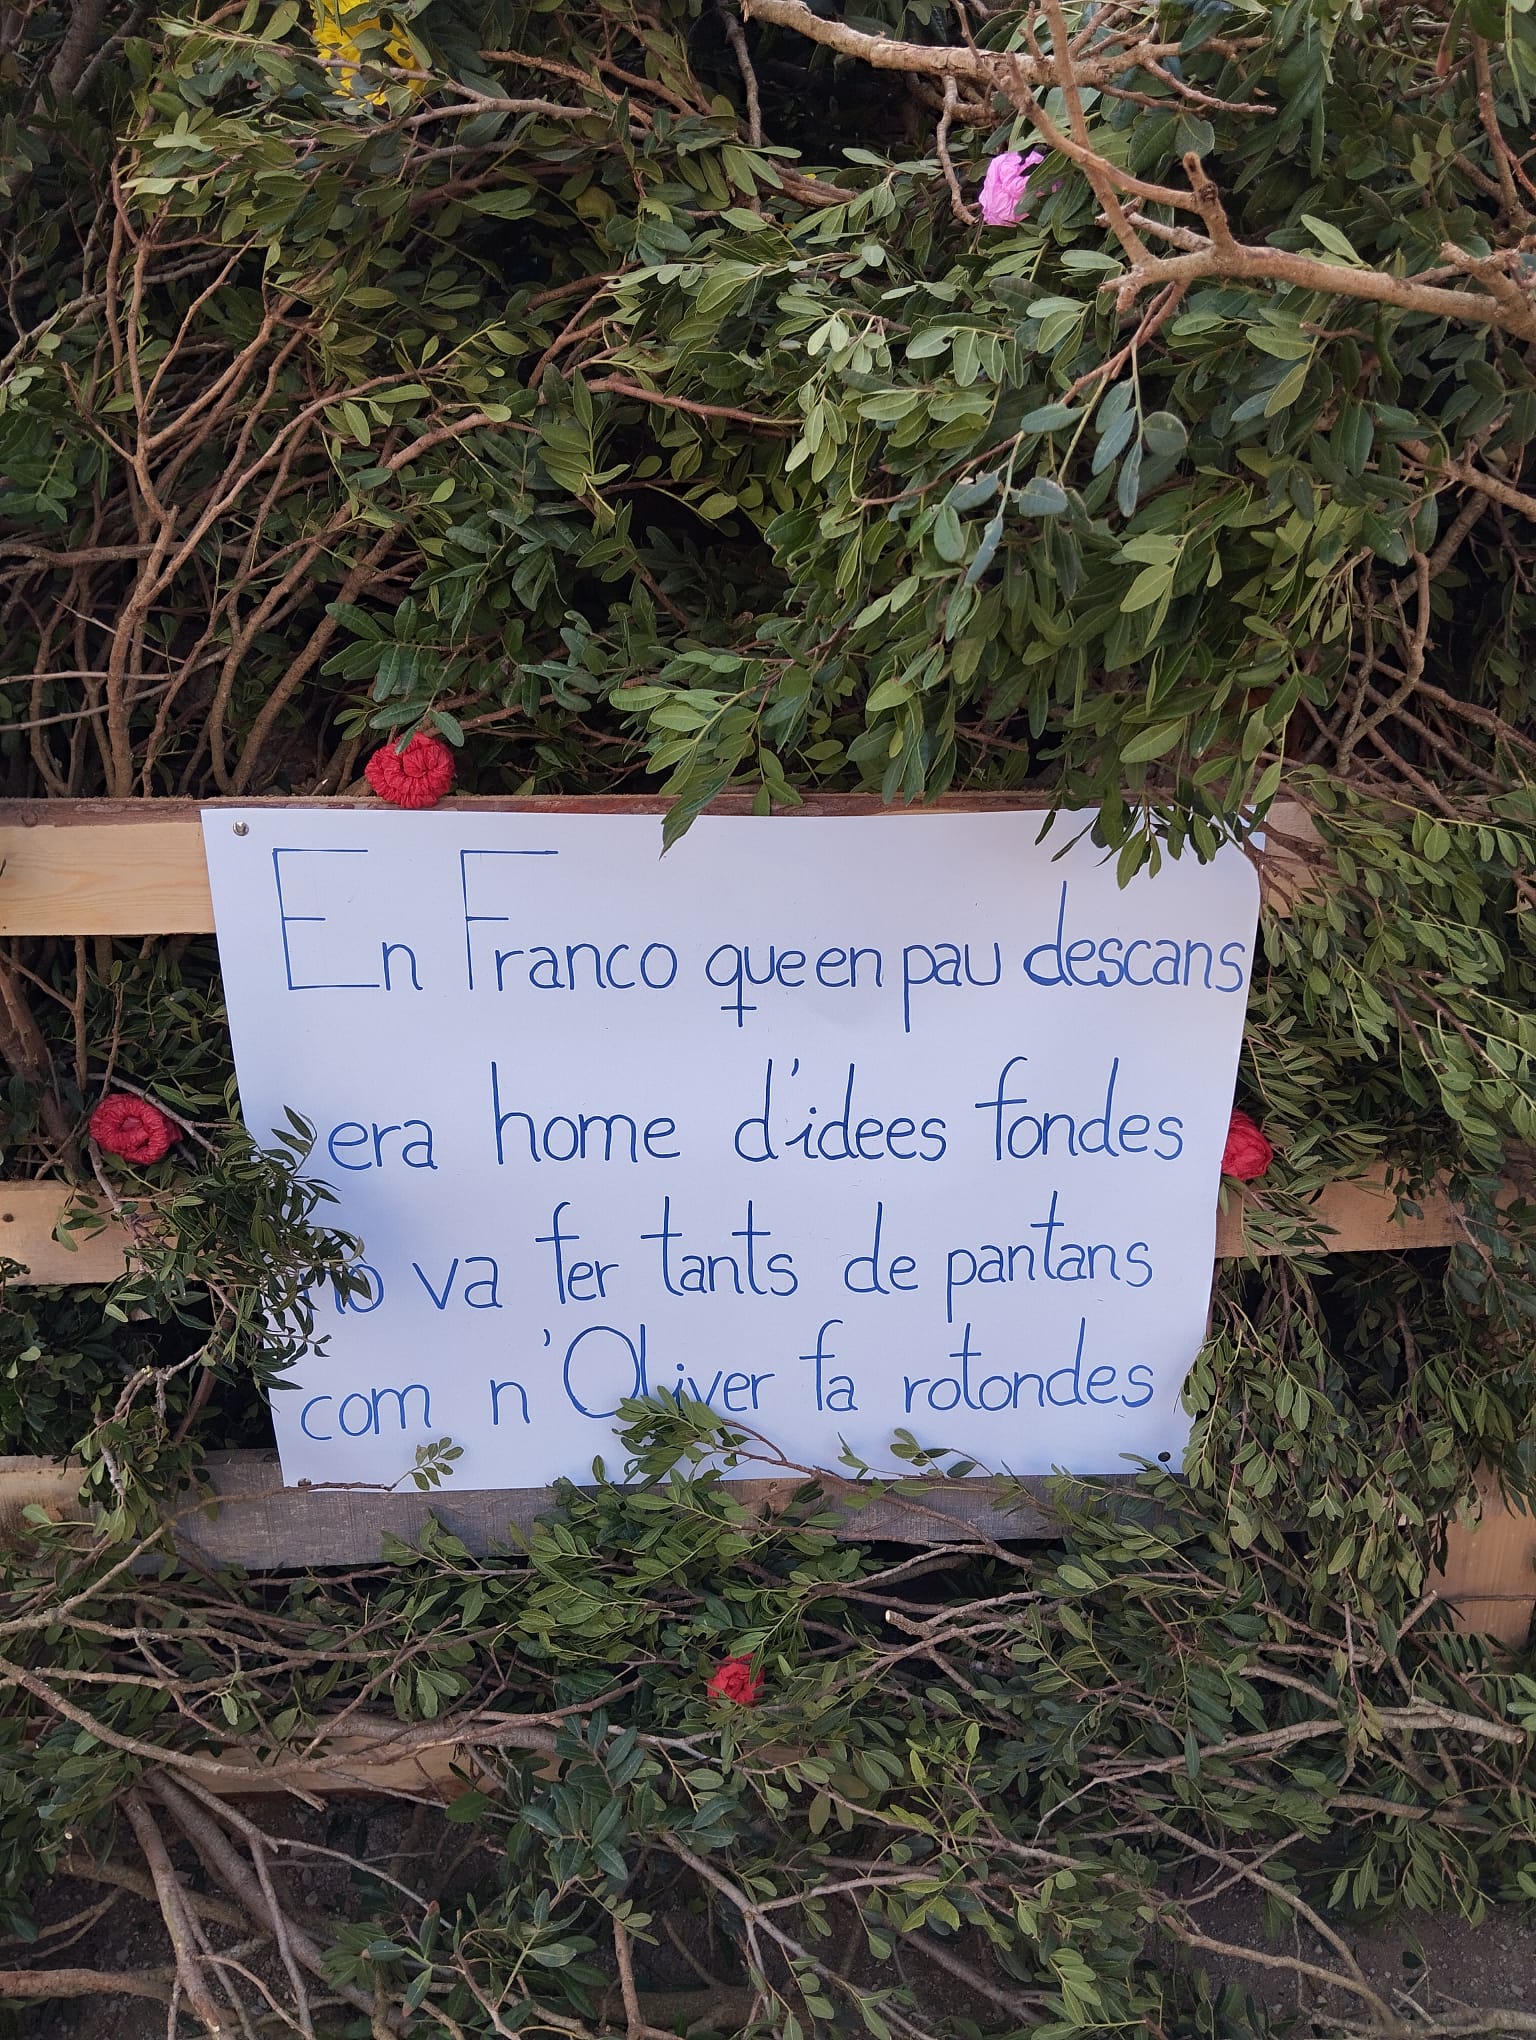 En Franco que en pau descans
era home d'idees fondes
no va fer tants de pantans
com n'Oliver fa rotondes